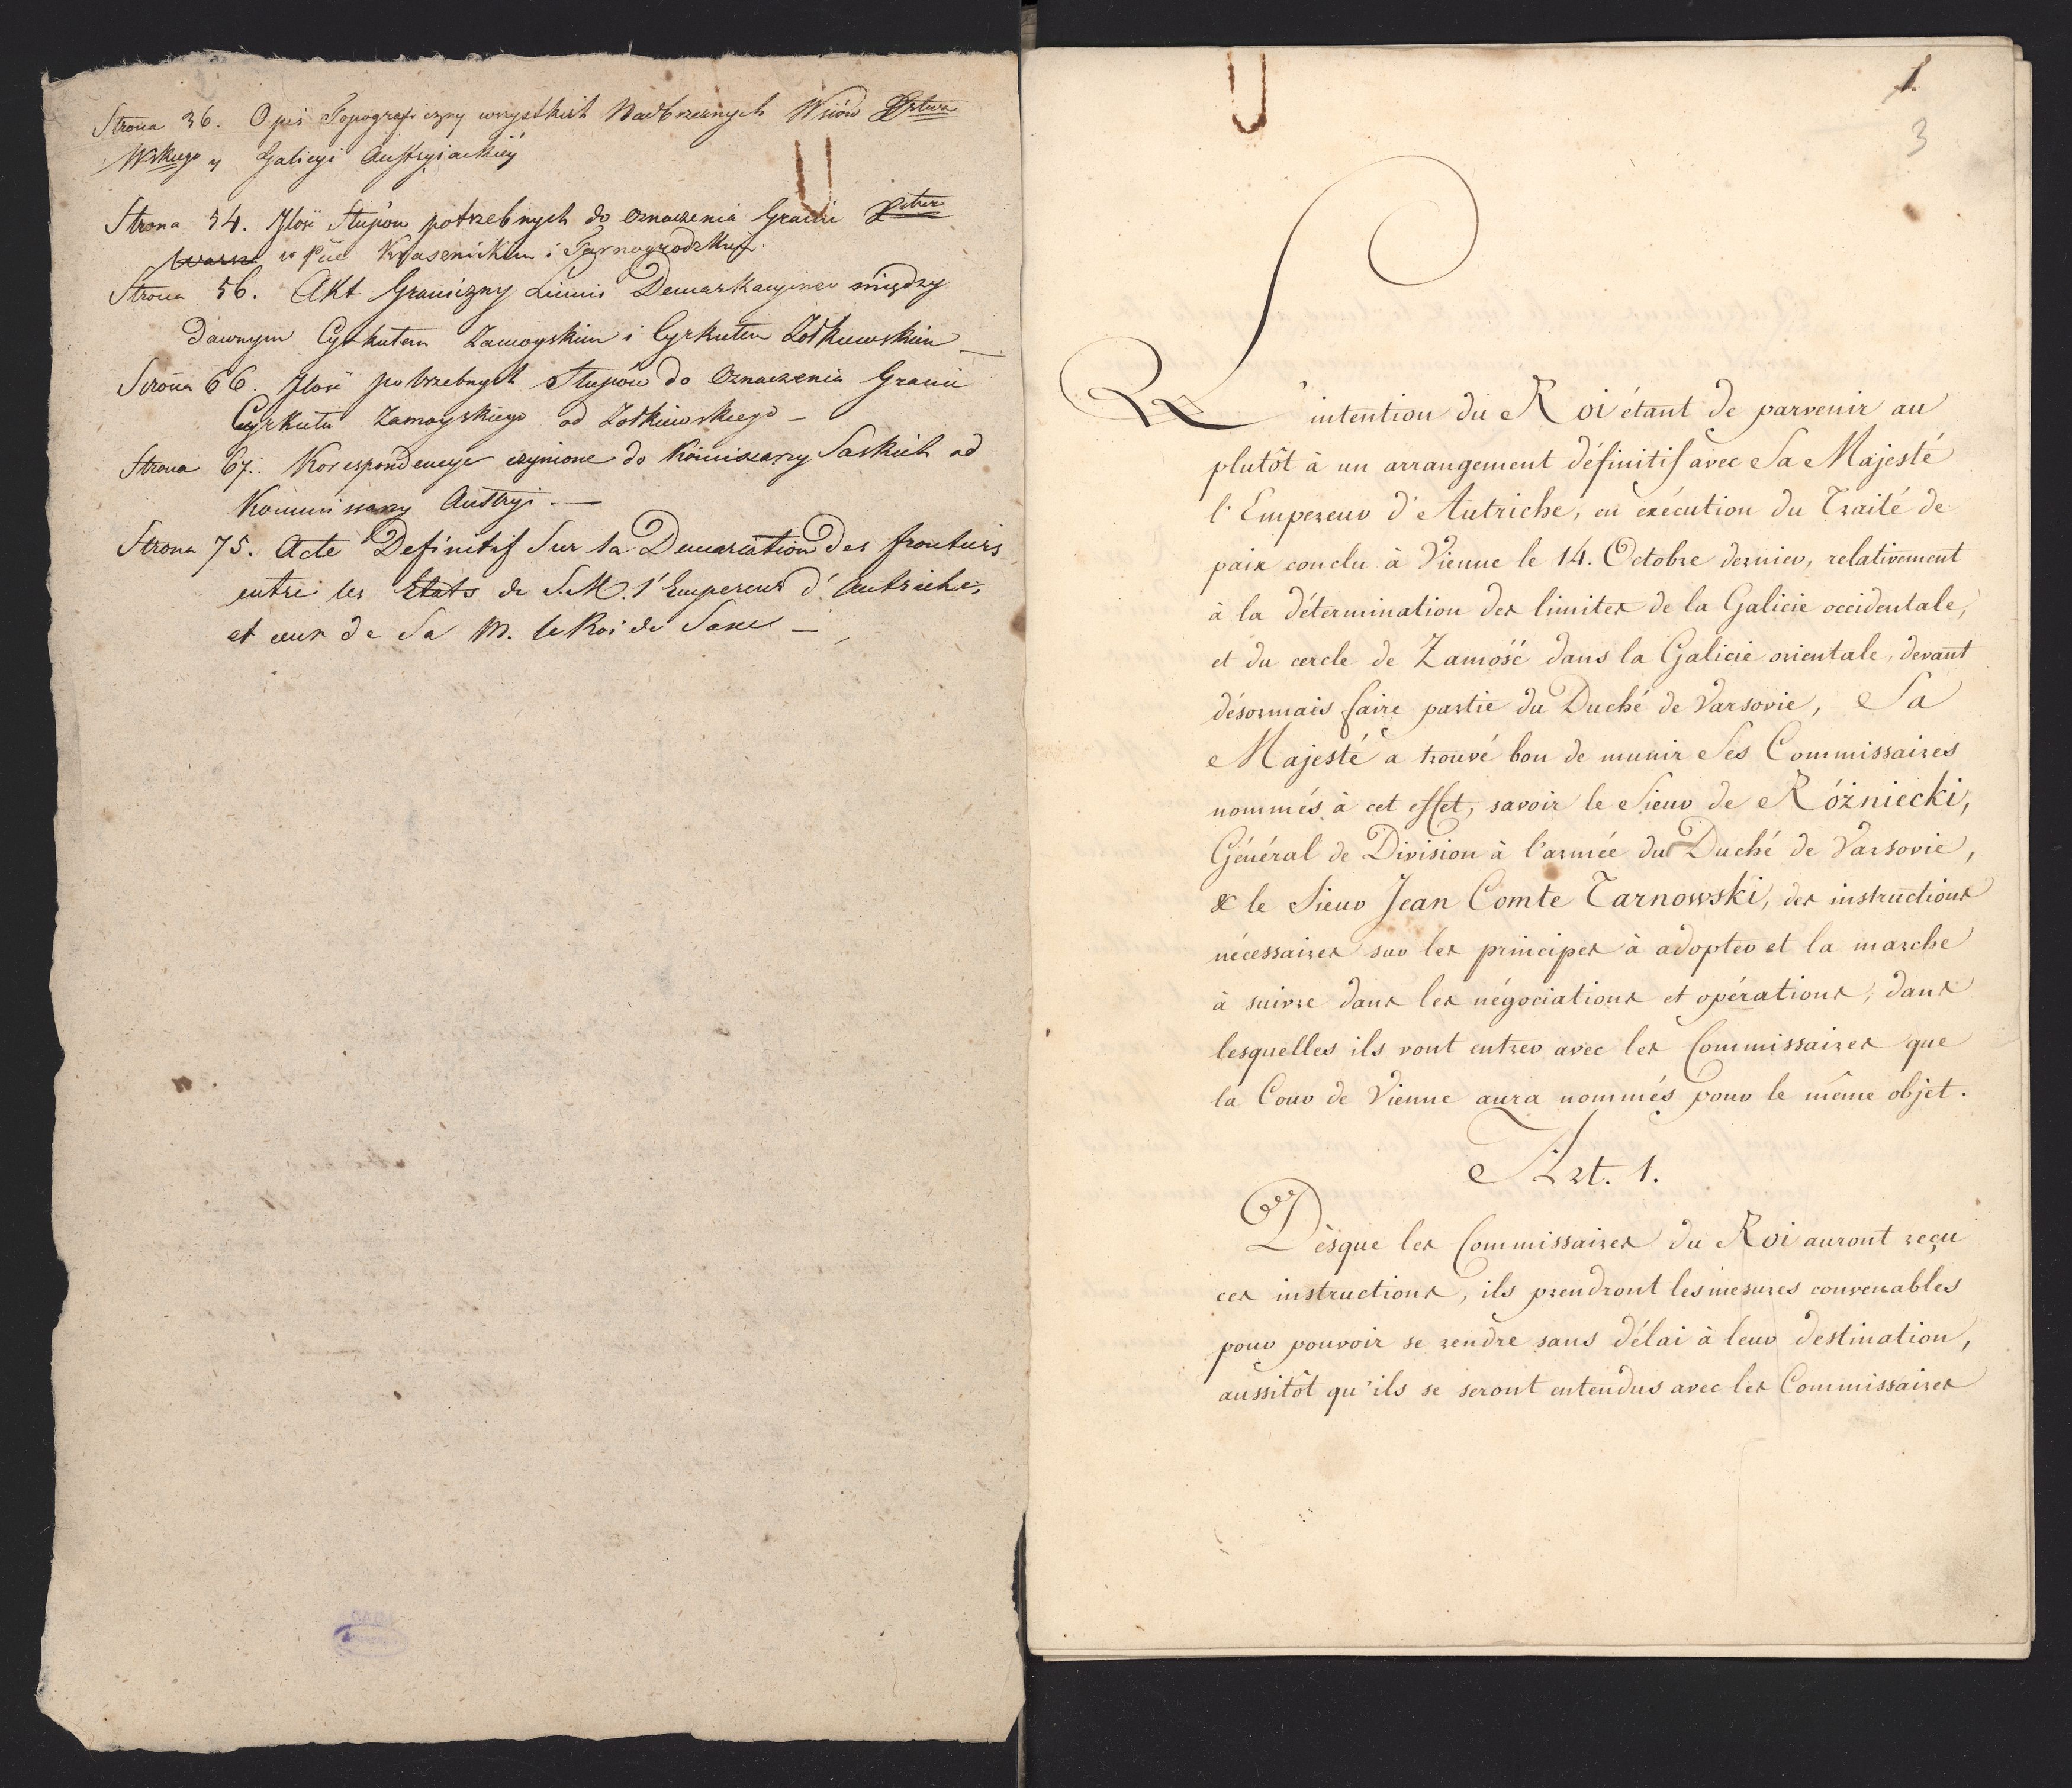 Strona 36. Opis Topograficzny wszystkich Nadbrzeznych Wsiów Xstwa
Wskiego y Galicyi Austryiackiéy
Strona 54. Ilość Słupów potrzebnych do oznaczenia Granic
w Pcie Krasenickim i Tarnogrodzkim.
Strona 56. Akt Graniczny Linii Demarkacyiney między
dawnym Cyrkułem Zamoyskim i Cyrkułem Żołkiewskim —
Strona 66. Ilość potrzebnych Słupów do Oznaczenia Granic
Cyrkułu Zamoyskiego od Zołkiewskiego —
Strona 67. Korespondencye czynione do Kommissarzy Saskich od
Kommissarzy Austryi. —
Strona 75. Acte Definitif Sur la Demarcation des frontiers
entre les Etats de S.M. l'Empereur d'Autriche,
et ceux de Sa M. le Roi de Saxe —
1.
3
L'intention du Roi étant de parvenir au
plutôt à un arrangement définitif avec Sa Majesté
l'Empereur d'Autriche, en exécution du Traité de
paix conclu à Vienne le 14. Octobre dernier, relativement
à la détermination des limites de la Galicie occidentale,
et du cercle de Zamość dans la Galicie orientale, devant
désormais faire partie du Duché de Varsovie, Sa
Majesté a trouvé bon de munir Ses Commissaires
nommés à cet effet, savoir le Sieur de Różniecki,
Général de Division à l'armée du Duché de Varsovie,
& le Sieur Jean Comte Tarnowski, des instructions
nécessaires sur les principes à adopter et la marche
à suivre dans les négociations et opérations, dans
lesquelles ils vont entrer avec les Commissaires que
la Cour de Vienne aura nommés pour le même objet.
Art. 1.
Dèsque les Commissaires du Roi auront reçu
ces instructions, ils prendront les mesures convenables
pour pouvoir se rendre sans délai à leur destination,
aussitôt qu'ils se seront entendus avec les Commissaires